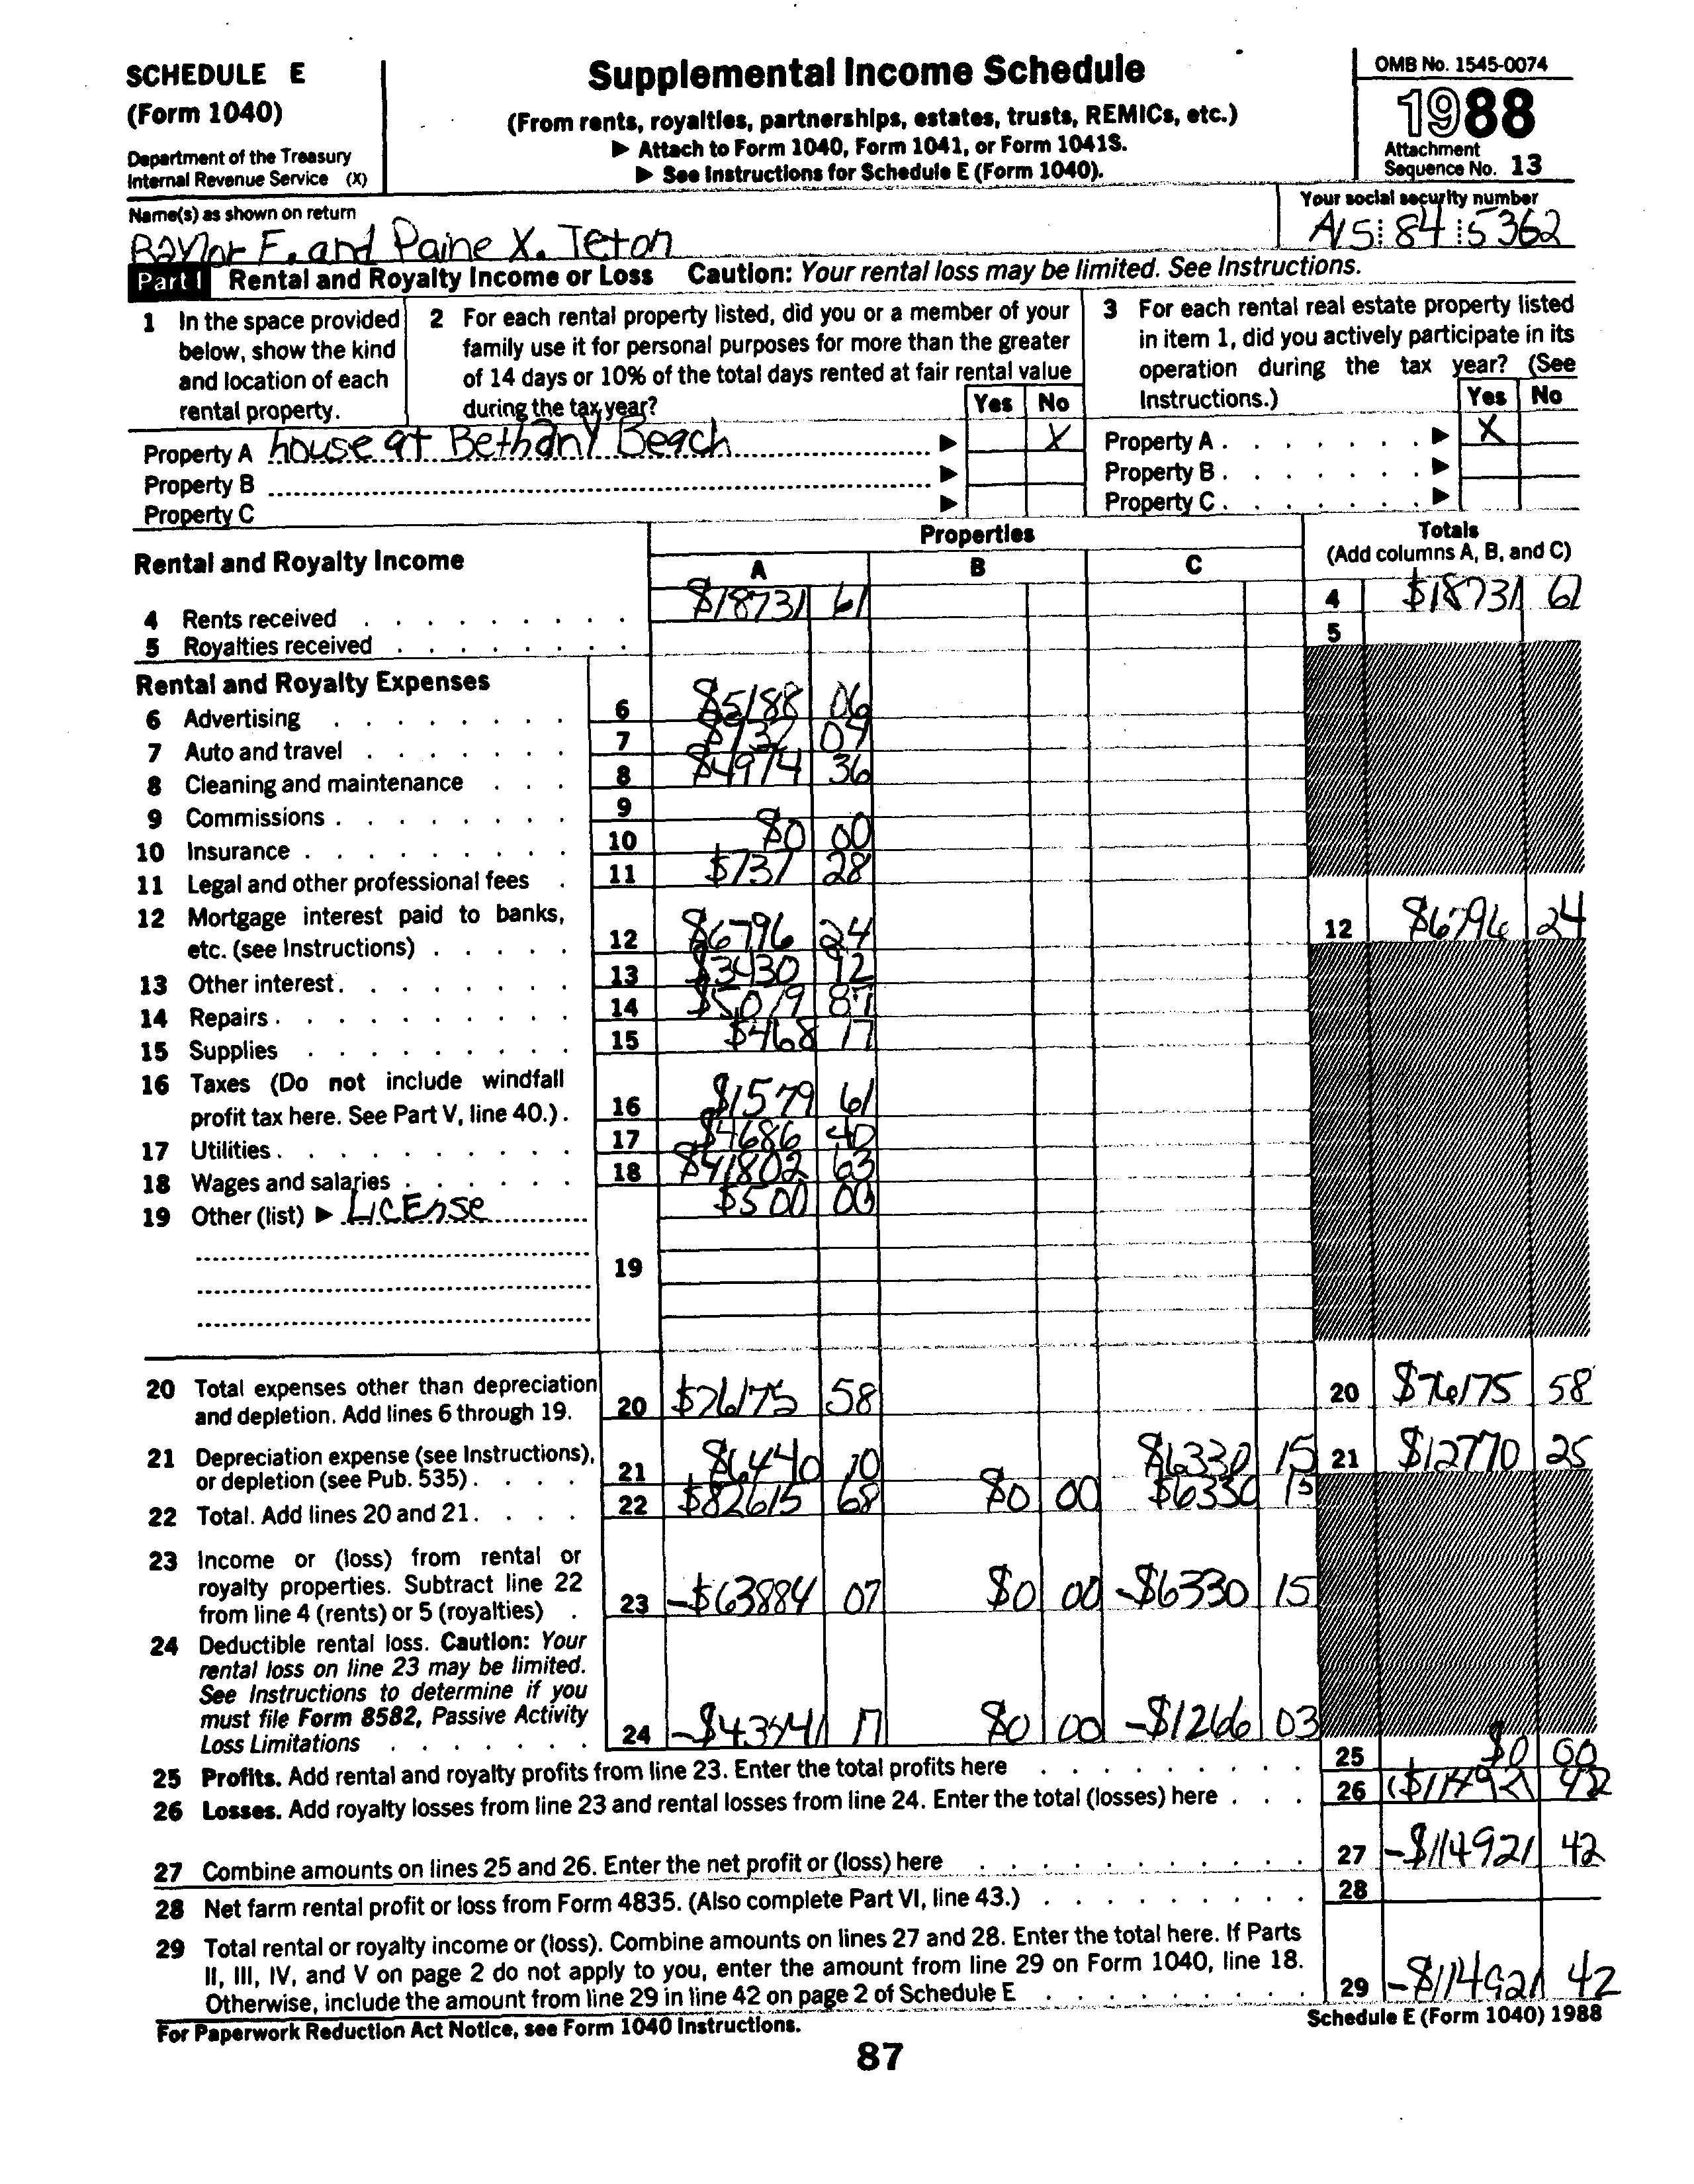 SCHEDULE E
(Form 1040)
Department of the Treasury
Internal Revenue Service (X)
Supplemental Income Schedule
(From rents, royalties, partnerships, estates, trusts, REMICs, etc.)
▶ Attach to Form 1040, Form 1041, or Form 1041S.
▶ See Instructions for Schedule E (Form 1040).
OMB No. 1545-0074
1988
Attachment
Sequence No. 13
Name(s) as shown on return
Baylor F. and Paine X. Teton
Your social security number
A15 84 5362
Part I Rental and Royalty Income or Loss Caution: Your rental loss may be limited. See Instructions.
1 In the space provided
below, show the kind
and location of each
rental property.
2 For each rental property listed, did you or a member of your
family use it for personal purposes for more than the greater
of 14 days or 10% of the total days rented at fair rental value
during the tax year? Yes No
3 For each rental real estate property listed
in item 1, did you actively participate in its
operation during the tax year? (See
Instructions.) Yes No
Property A house at Bethany Beach ▶ X Property A ▶ X
Property B ▶ Property B ▶
Property C ▶ Property C ▶
Properties Totals
Rental and Royalty Income A B C (Add columns A, B, and C)
4 Rents received $18731 61 4 $18731 61
5 Royalties received 5
Rental and Royalty Expenses
6 Advertising 6 $5188 06
7 Auto and travel 7
8 Cleaning and maintenance 8 $4974 36
9 Commissions 9
10 Insurance 10 $0 00
11 Legal and other professional fees 11 $737 28
12 Mortgage interest paid to banks,
etc. (see Instructions) 12 $6796 24 12 $6796 24
13 Other interest 13 $3430 92
14 Repairs 14 $5079 87
15 Supplies 15 $468 17
16 Taxes (Do not include windfall
profit tax here. See Part V, line 40.) 16 $1579 61
17 Utilities 17 $4686 40
18 Wages and salaries 18 $41802 63
19 Other (list) ▶ License $500 00
19
20 Total expenses other than depreciation
and depletion. Add lines 6 through 19. 20 $76175 58 20 $76175 58
21 Depreciation expense (see Instructions),
or depletion (see Pub. 535) 21 $6440 10 $6330 15 21 $12770 25
22 Total. Add lines 20 and 21. 22 $82615 68 $0 00 $6330 15
23 Income or (loss) from rental or
royalty properties. Subtract line 22
from line 4 (rents) or 5 (royalties) 23 -$63884 07 $0 00 -$6330 15
24 Deductible rental loss. Caution: Your
rental loss on line 23 may be limited.
See Instructions to determine if you
must file Form 8582, Passive Activity
Loss Limitations 24 $0 00 -$1266 03
25 Profits. Add rental and royalty profits from line 23. Enter the total profits here 25 $0 00
26 Losses. Add royalty losses from line 23 and rental losses from line 24. Enter the total (losses) here 26 ($114921 42
27 Combine amounts on lines 25 and 26. Enter the net profit or (loss) here 27 -$114921 42
28 Net farm rental profit or loss from Form 4835. (Also complete Part VI, line 43.) 28
29 Total rental or royalty income or (loss). Combine amounts on lines 27 and 28. Enter the total here. If Parts
II, III, IV, and V on page 2 do not apply to you, enter the amount from line 29 on Form 1040, line 18.
Otherwise, include the amount from line 29 in line 42 on page 2 of Schedule E 29 -$114921 42
For Paperwork Reduction Act Notice, see Form 1040 Instructions. Schedule E (Form 1040) 1988
87